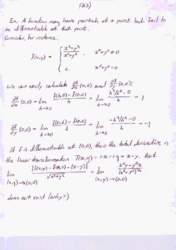 (23)
Ex. A function may have partials at a point but fail to
be differentiable at that point.
Consider, for instance,
f(x,y) = { x³-y³ / x²+y² x²+y² ≠ 0
0 x²+y² = 0
We can easily calculate ∂f/∂x (0,0) and ∂f/∂y (0,0):
∂f/∂x (0,0) = lim h→0 f(h,0) - f(0,0) / h = lim h→0 h³/h² - 0 / h = 1
∂f/∂y (0,0) = lim h→0 f(0,h) - f(0,0) / h = lim h→0 -h³/h² - 0 / h = -1
If f is differentiable at (0,0), then the total derivative is
the linear transformation T(x,y) = 1x - 1y = x-y. But
lim (x,y)→(0,0) |f(x,y) - f(0,0) - (x-y)| / √x²+y² = lim (x,y)→(0,0)
does not exist (why?)